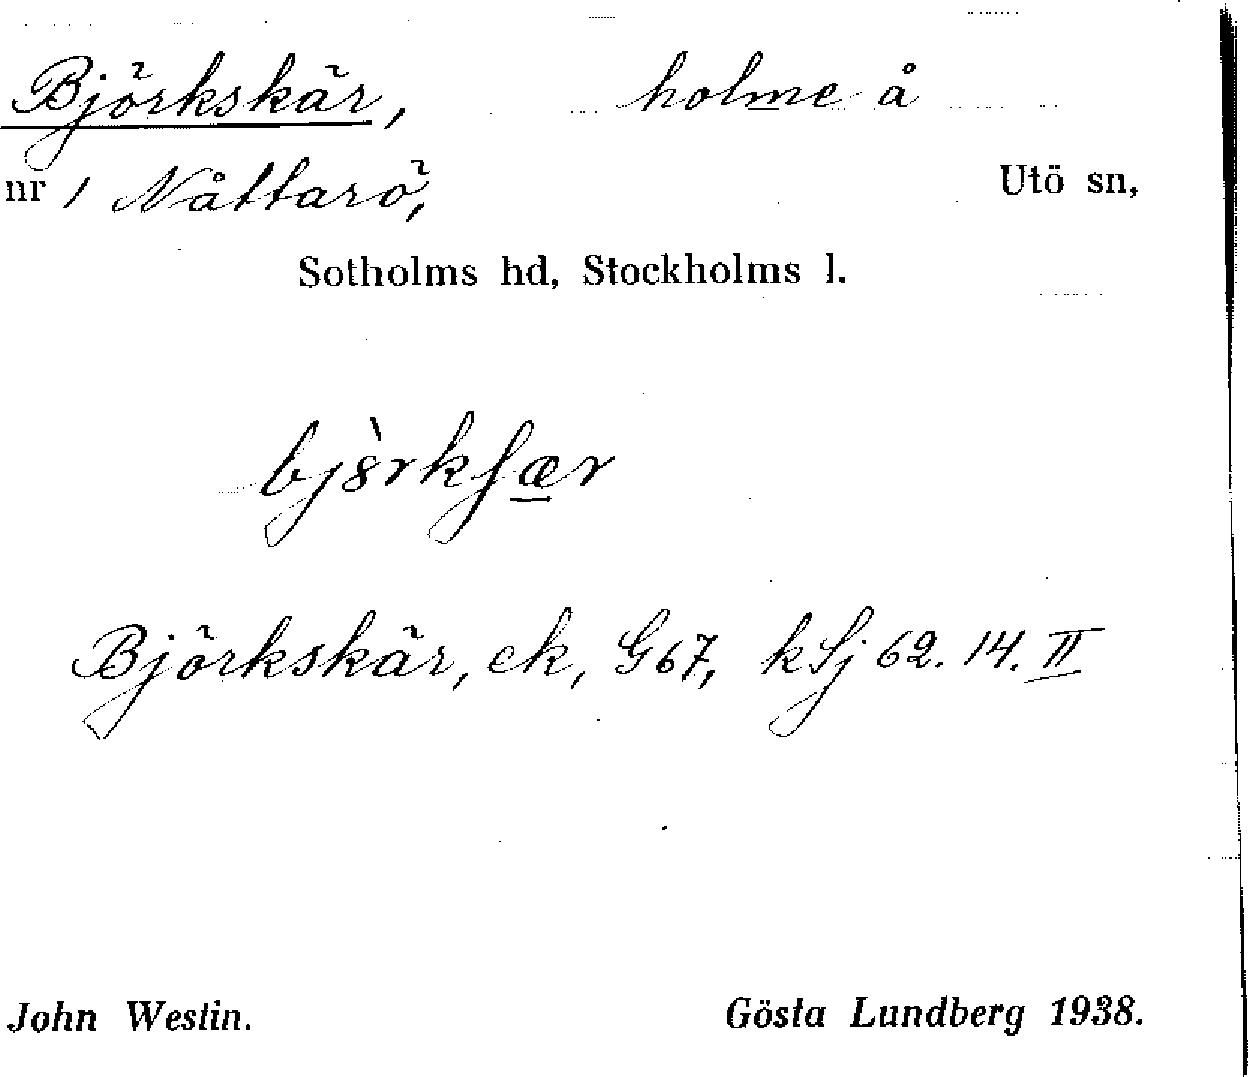 Björkskär, holme å
nr 1 Nåttarö, Utö sn,
Sotholms hd, Stockholms l.
bjò̀rkʃær
Björkskär, ek, G67, kSj 62. 14. II
John Westin. Gösta Lundberg 1938.